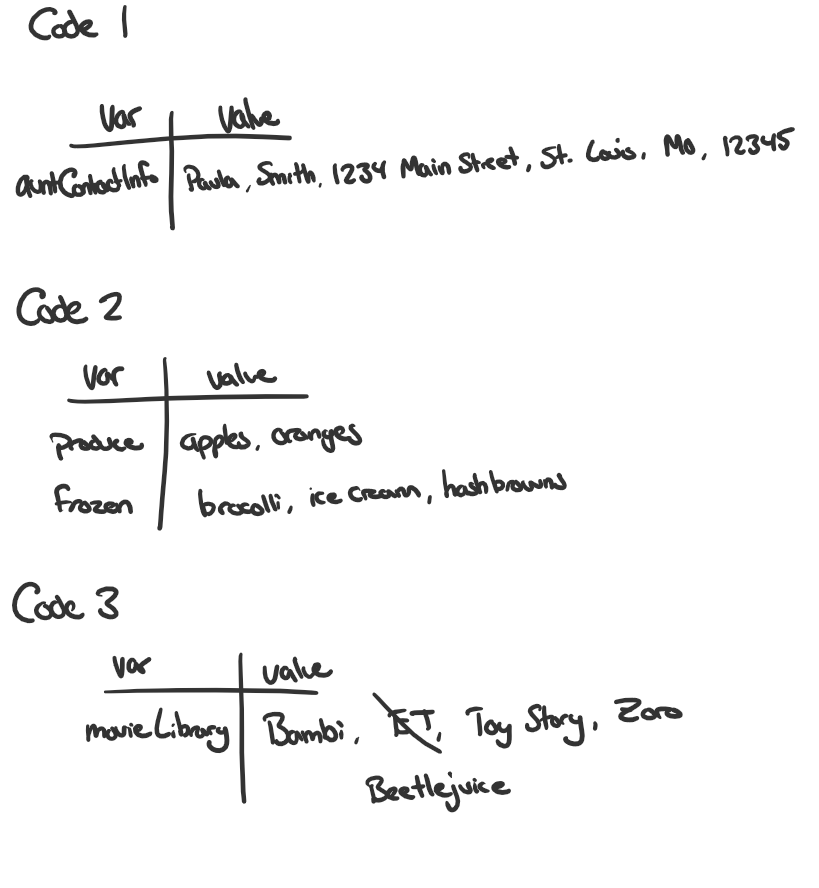 Code 1
Var Value
auntContactInfo Paula, Smith, 1234 Main Street, St. Louis, Mo, 12345
Code 2
Var Value
produce apples, oranges
frozen brocolli, ice cream, hashbrowns
Code 3
Var Value
movieLibrary Bambi, ET, Toy Story, Zoro
Beetlejuice